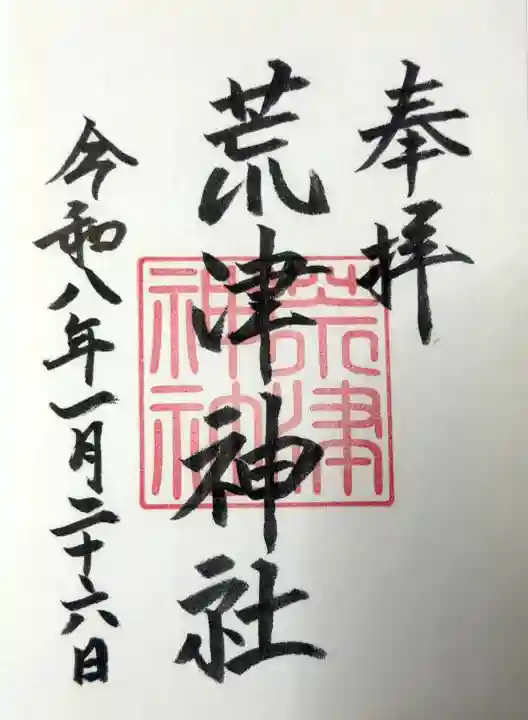 奉拝
荒津神社
荒津
神社
令和八年一月二十六日